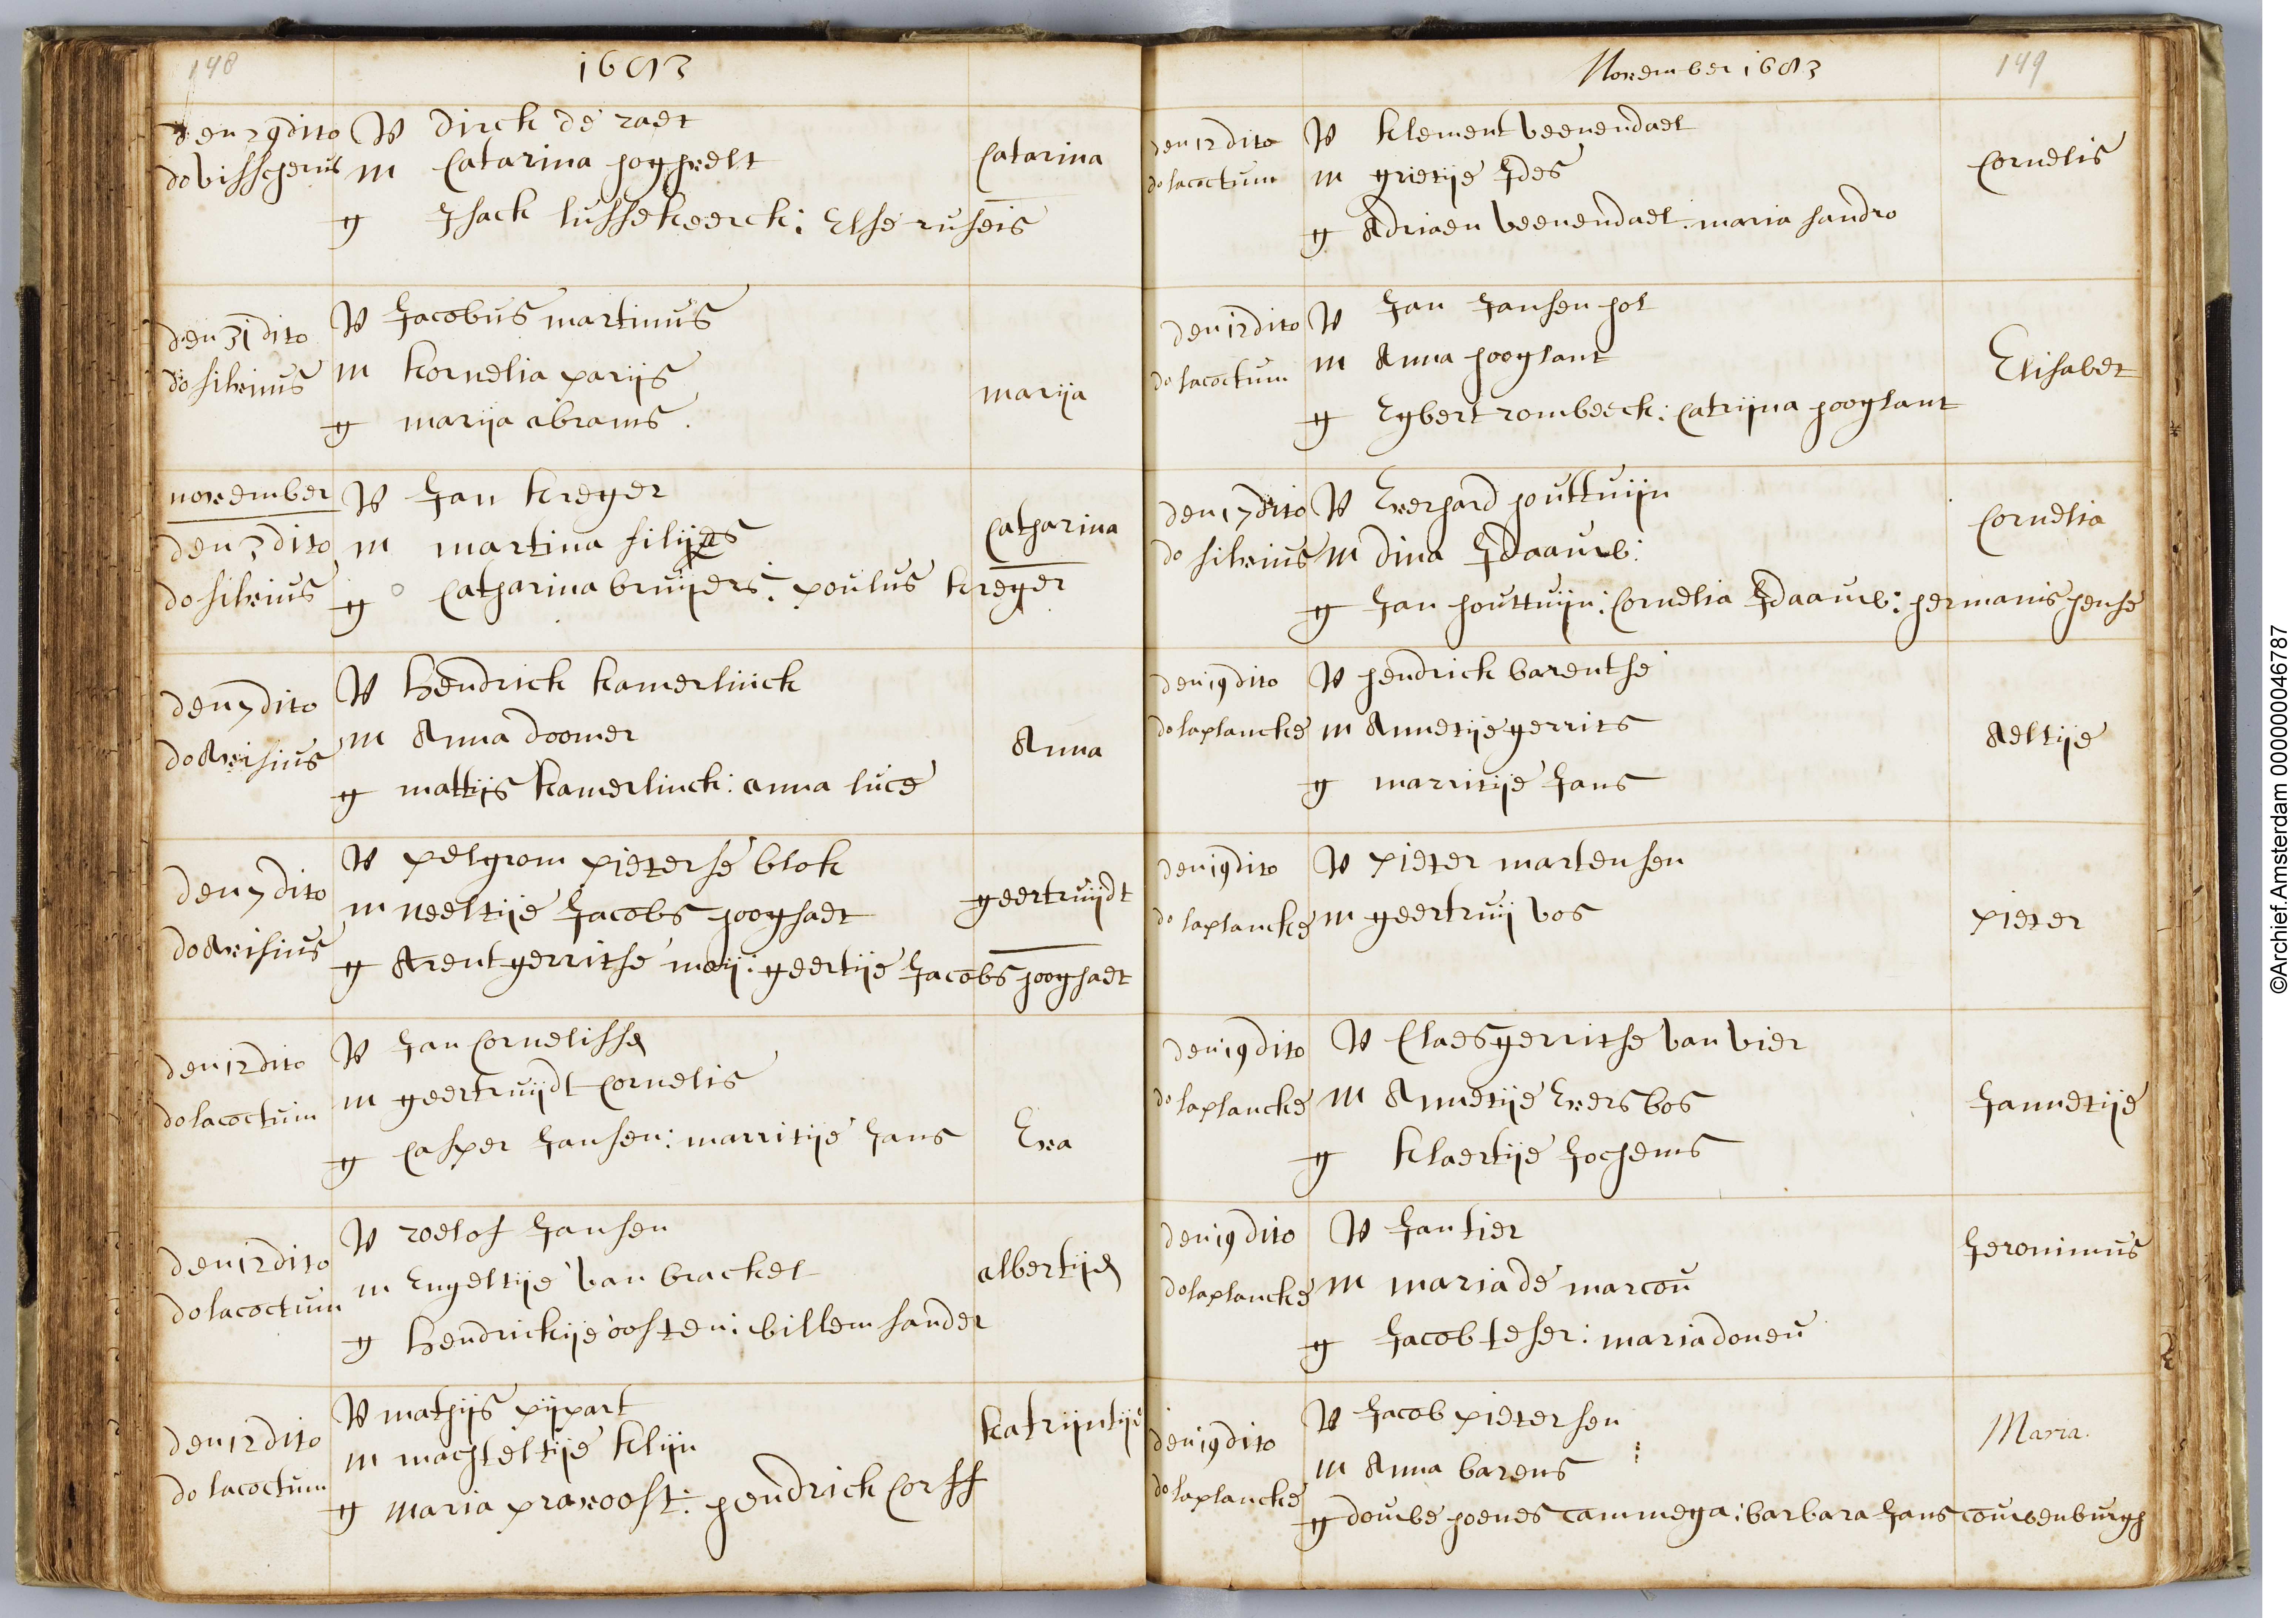 148
1683
den 29 dito
do visscherus
V dirck de raet
M Catarina hoghvelt
g Jsack lussekeerck: Else ruseis
Catarina
den 31 dito
do silvius
V Jacobus martinus
M kornelia parijs
g marija abrams.
marija
november
den 3 dito
do silvius
V Jan kreger
M martina silijes
g Catharina bruijers: poulus kreger
Catharina
den 7 dito
do Avisius
V Hendrick kamerlinck
M Anna doomer
g mattijs kamerlinck: anna luce
Anna
den 7 dito
do Avisius
V pelgrom pieterse blok
M neeltije Jacobs hooghaet
g Arent gerritse meij: geertije Jacobs hooghaet
geertruijdt
den 12 dito
do lacoctum
V Jan Cornelisse
M geertruijdt Cornelis
g Casper Jansen: marritije Jans
Eva
den 12 dito
do lacoctum
V roelof Jansen
M Engeltije van brackel
g Hendrickije oosten: willem sander
albertije
den 12 dito
do lacoctum
V mathijs pijpart
M machteltije klijn
g Maria pravoost: hendrick Corff
katrijntije
November 1683
149
den 12 dito
do lacoctum
V klement veenendael
M grietije Jdes
g Adriaen veenendael: maria sandro
Cornelis
den 12 dito
do lacoctum
V Jan Jansen hol
M Anna hooglant
g Egbert rombeeck: Catrijna hooglant
Elisabet
den 17 dito
do silvius
V Everhard houttuijn
M dina Jdaauw:
g Jan houttuijn: Cornelia Jdaauw: hermanis hense
Cornelia
den 19 dito
do laplancke
V hendrick barentse
M Annetije gerrits
g marritije Jans
Aeltije
den 19 dito
do laplancke
V pieter martensen
M geertruij vos
pieter
den 19 dito
do laplancke
V Claes gerritse van vier
M Annetije Evers bos
g klaertije Jochems
Jannetije
den 19 dito
do laplancke
V Jan tier
M maria de marcou
g Jacob teser: maria doneu
Jeronimus
den 19 dito
do laplancke
V Jacob pietersen
M Anna barens
g douwe hoenes tammega: barbara Jans couwenburgh
Maria.
©Archief.Amsterdam 000000046787